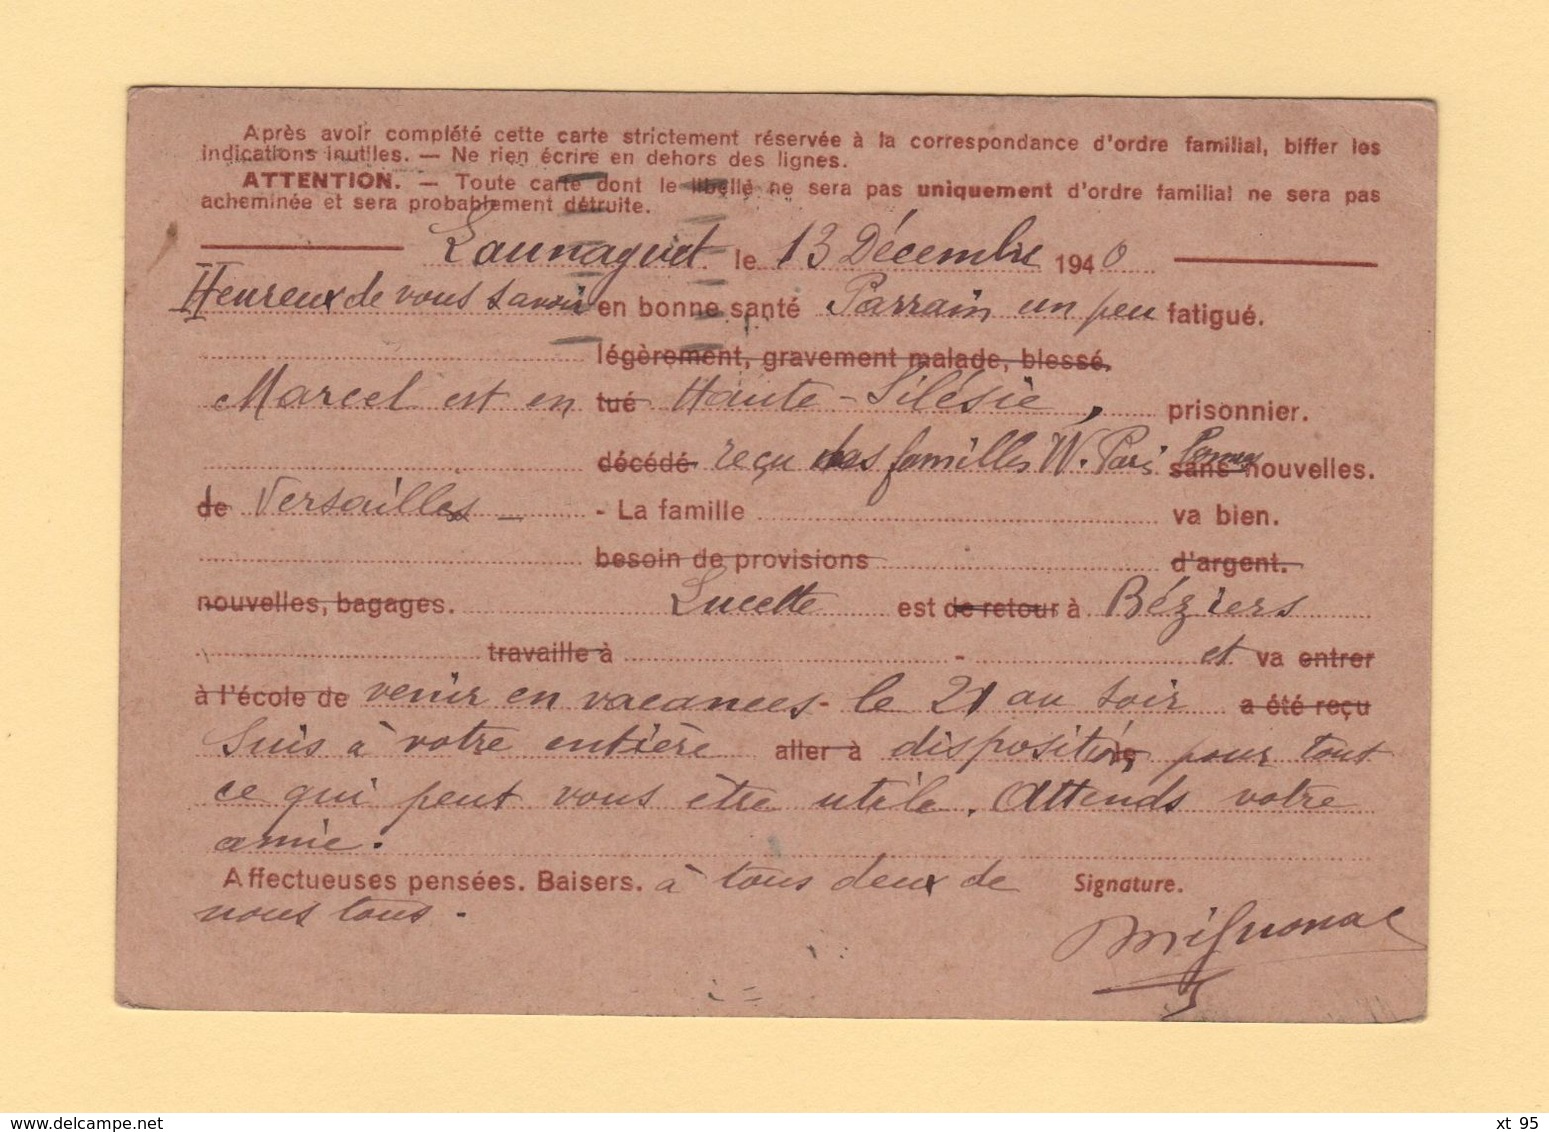 Après avoir complété cette carte strictement réservée à la correspondance d'ordre familial, biffer les
indications inutiles. — Ne rien écrire en dehors des lignes.
ATTENTION. — Toute carte dont le libellé ne sera pas uniquement d'ordre familial ne sera pas
acheminée et sera probablement détruite.
Launaguet le 13 Décembre 1940
Heureux de vous savoir en bonne santé Parrain un peu fatigué.
légèrement, gravement malade, blessé,
Marcel est en tué Haute-Silésie, prisonnier.
décédé reçu des familles W. Paris sans nouvelles.
de Versailles - La famille va bien.
besoin de provisions d'argent.
nouvelles, bagages. Lucette est de retour à Béziers
travaille à - et va entrer
à l'école de venir en vacances - le 21 au soir a été reçu
Suis à votre entière aller à disposition, le pour tout
ce qui peut vous être utile. Attends votre
amie.
Affectueuses pensées. Baisers. à tous deux de Signature.
nous tous.
Mignonac
xt 95